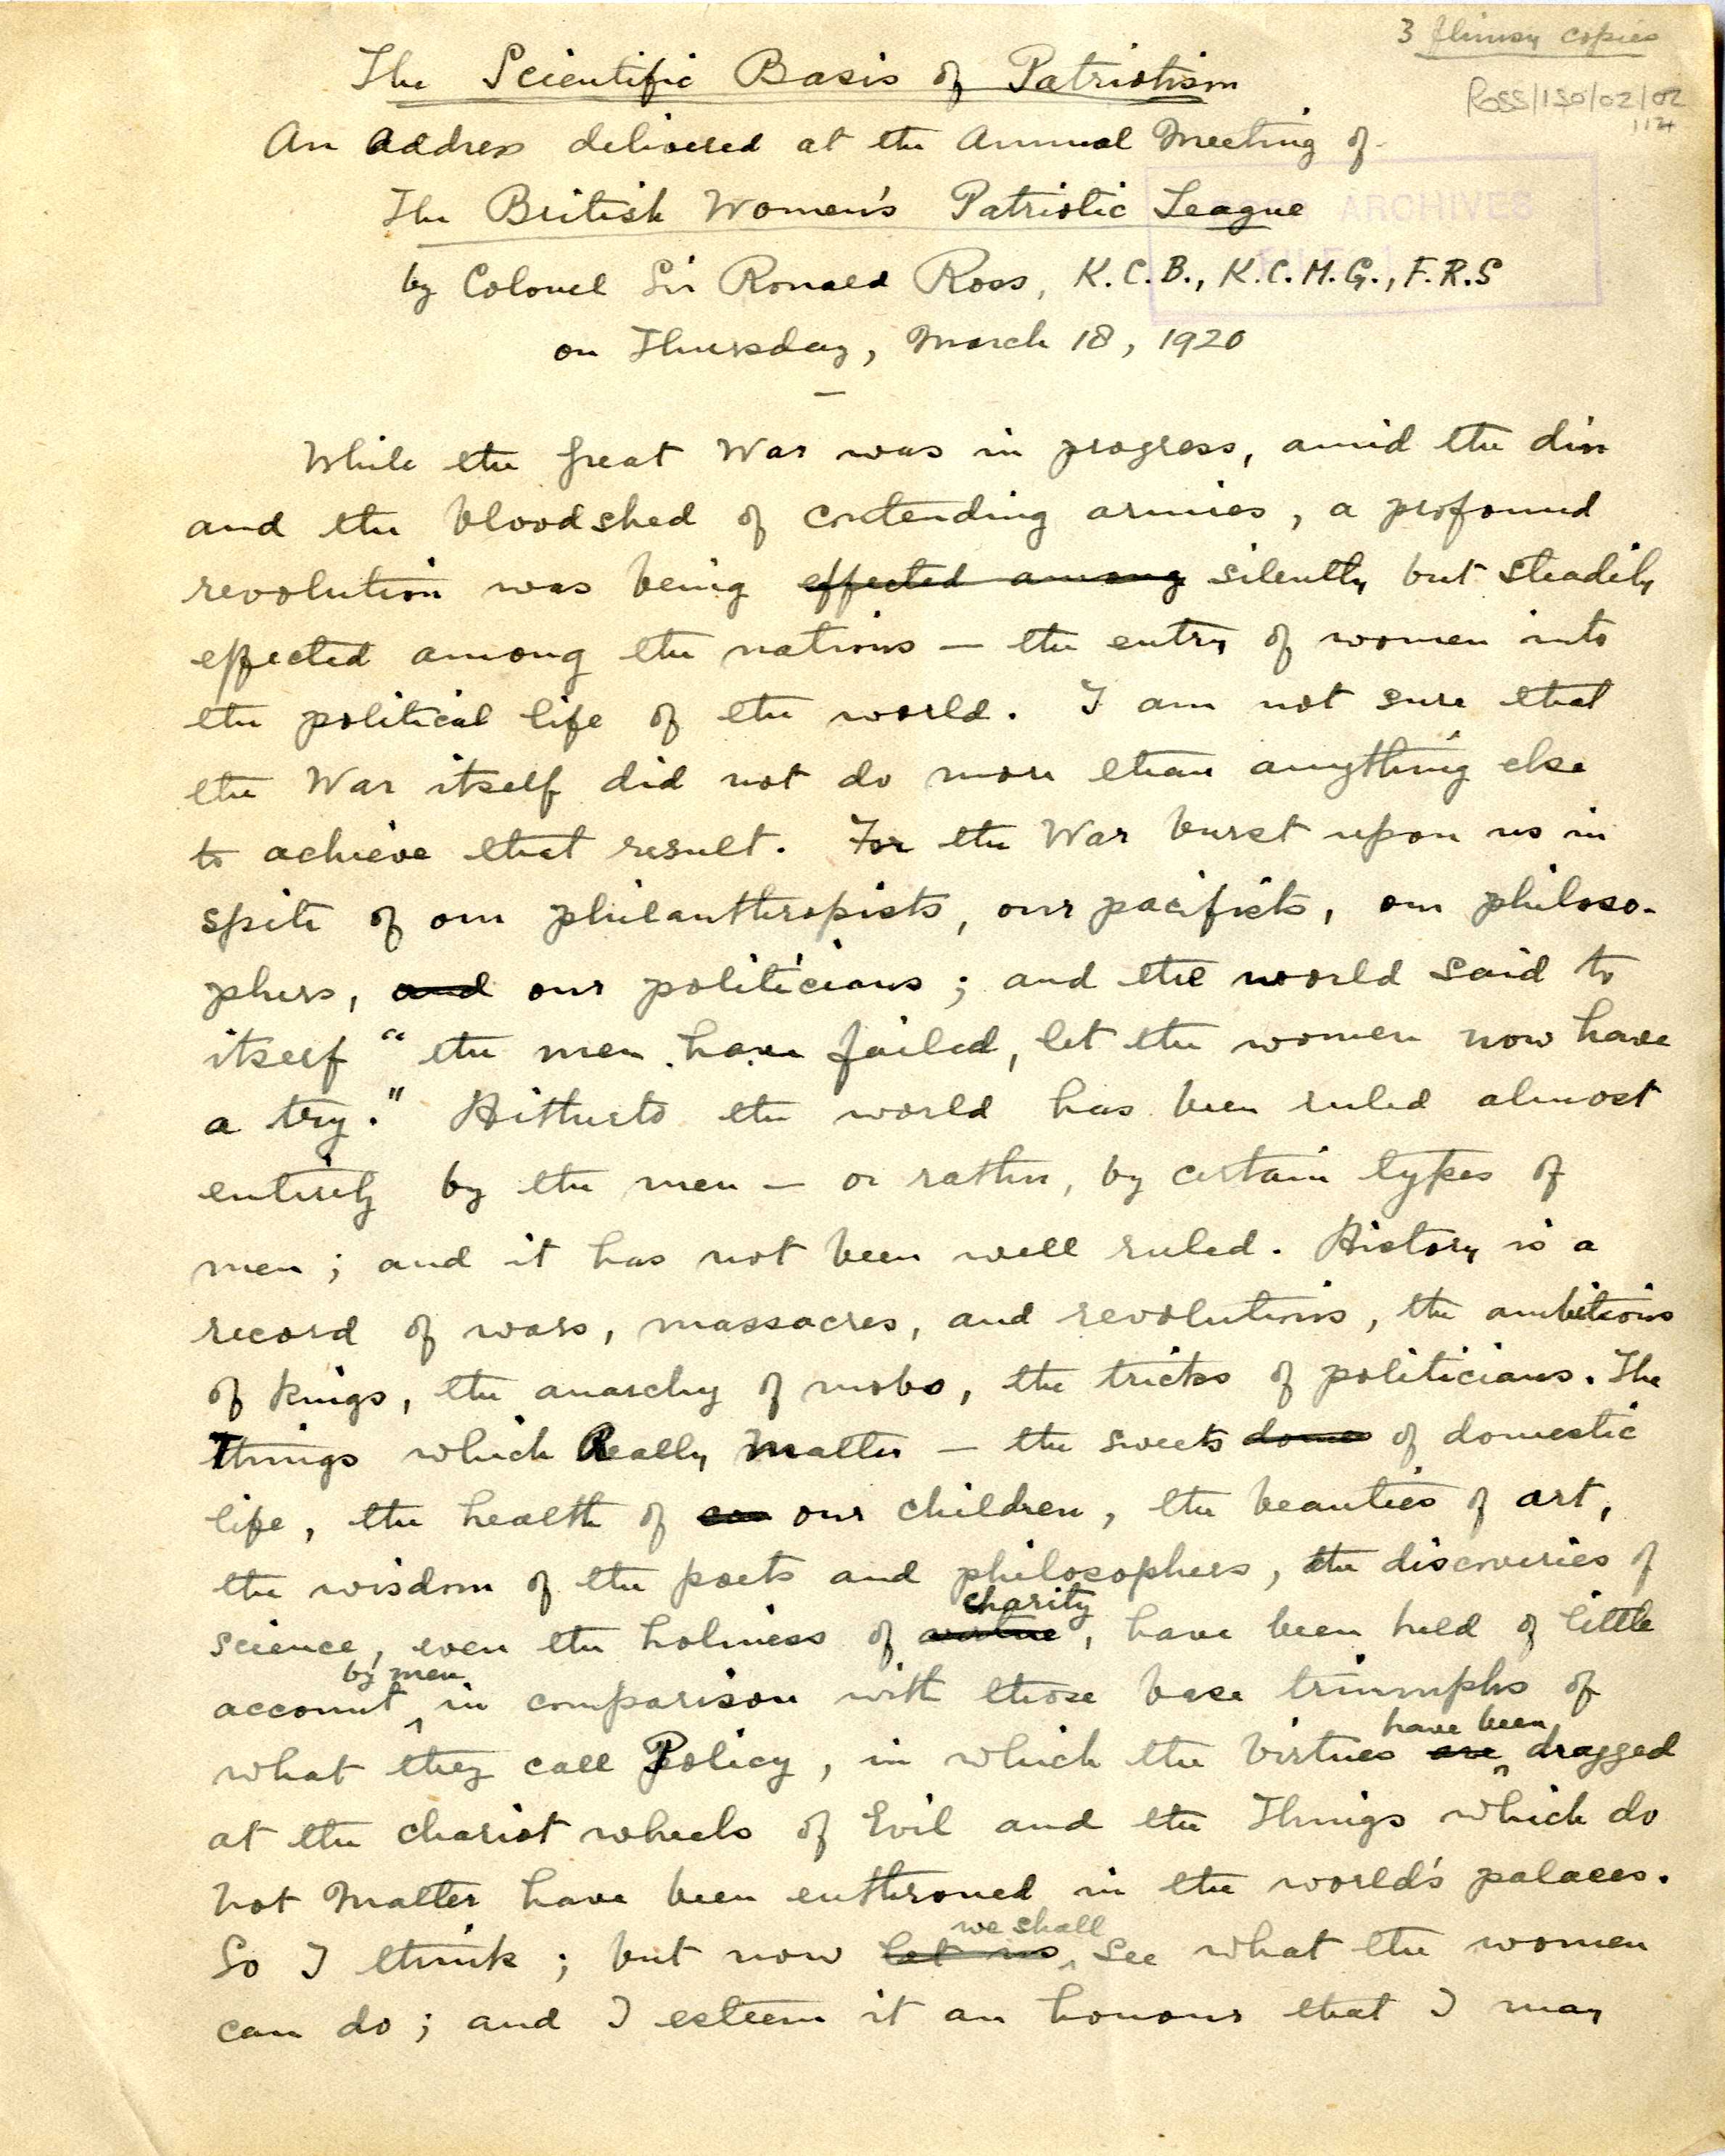 3 flimsy copies
Ross/150/02/02
The Scientific Basis of Patriotism
An Address delivered at the Annual Meeting of
The British Women's Patriotic League
ARCHIVES
by Colonel Sir Ronald Ross, K.C.B., K.C.M.G., F.R.S
on Thursday, March 18, 1920
While the Great War was in progress, amid the din
and the bloodshed of contending armies, a profound
revolution was being effected among silently but steadily
effected among the nations — the entry of women into
the political life of the world. I am not sure that
the War itself did not do more than anything else
to achieve that result. For the War burst upon us in
spite of our philanthropists, our pacifists, our philoso-
phers, and our politicians; and the world said to
itself "the men have failed, let the women now have
a try." Hitherto the world has been ruled almost
entirely by the men — or rather, by certain types of
men; and it has not been well ruled. History is a
record of wars, massacres, and revolutions, the ambitions
of kings, the anarchy of mobs, the tricks of politicians. The
Things which Really Matter — the sweets domes of domestic
life, the health of our children, the beauties of art,
the wisdom of the poets and philosophers, the discoveries of
charity
science, even the holiness of virtue, have been held of little
by men
account in comparison with those base triumphs of
have been
what they call Policy, in which the virtues are dragged
at the chariot wheels of Evil and the Things which do
not Matter have been enthroned in the world's palaces.
we shall
So I think; but now let us see what the women
can do; and I esteem it an honour that I may